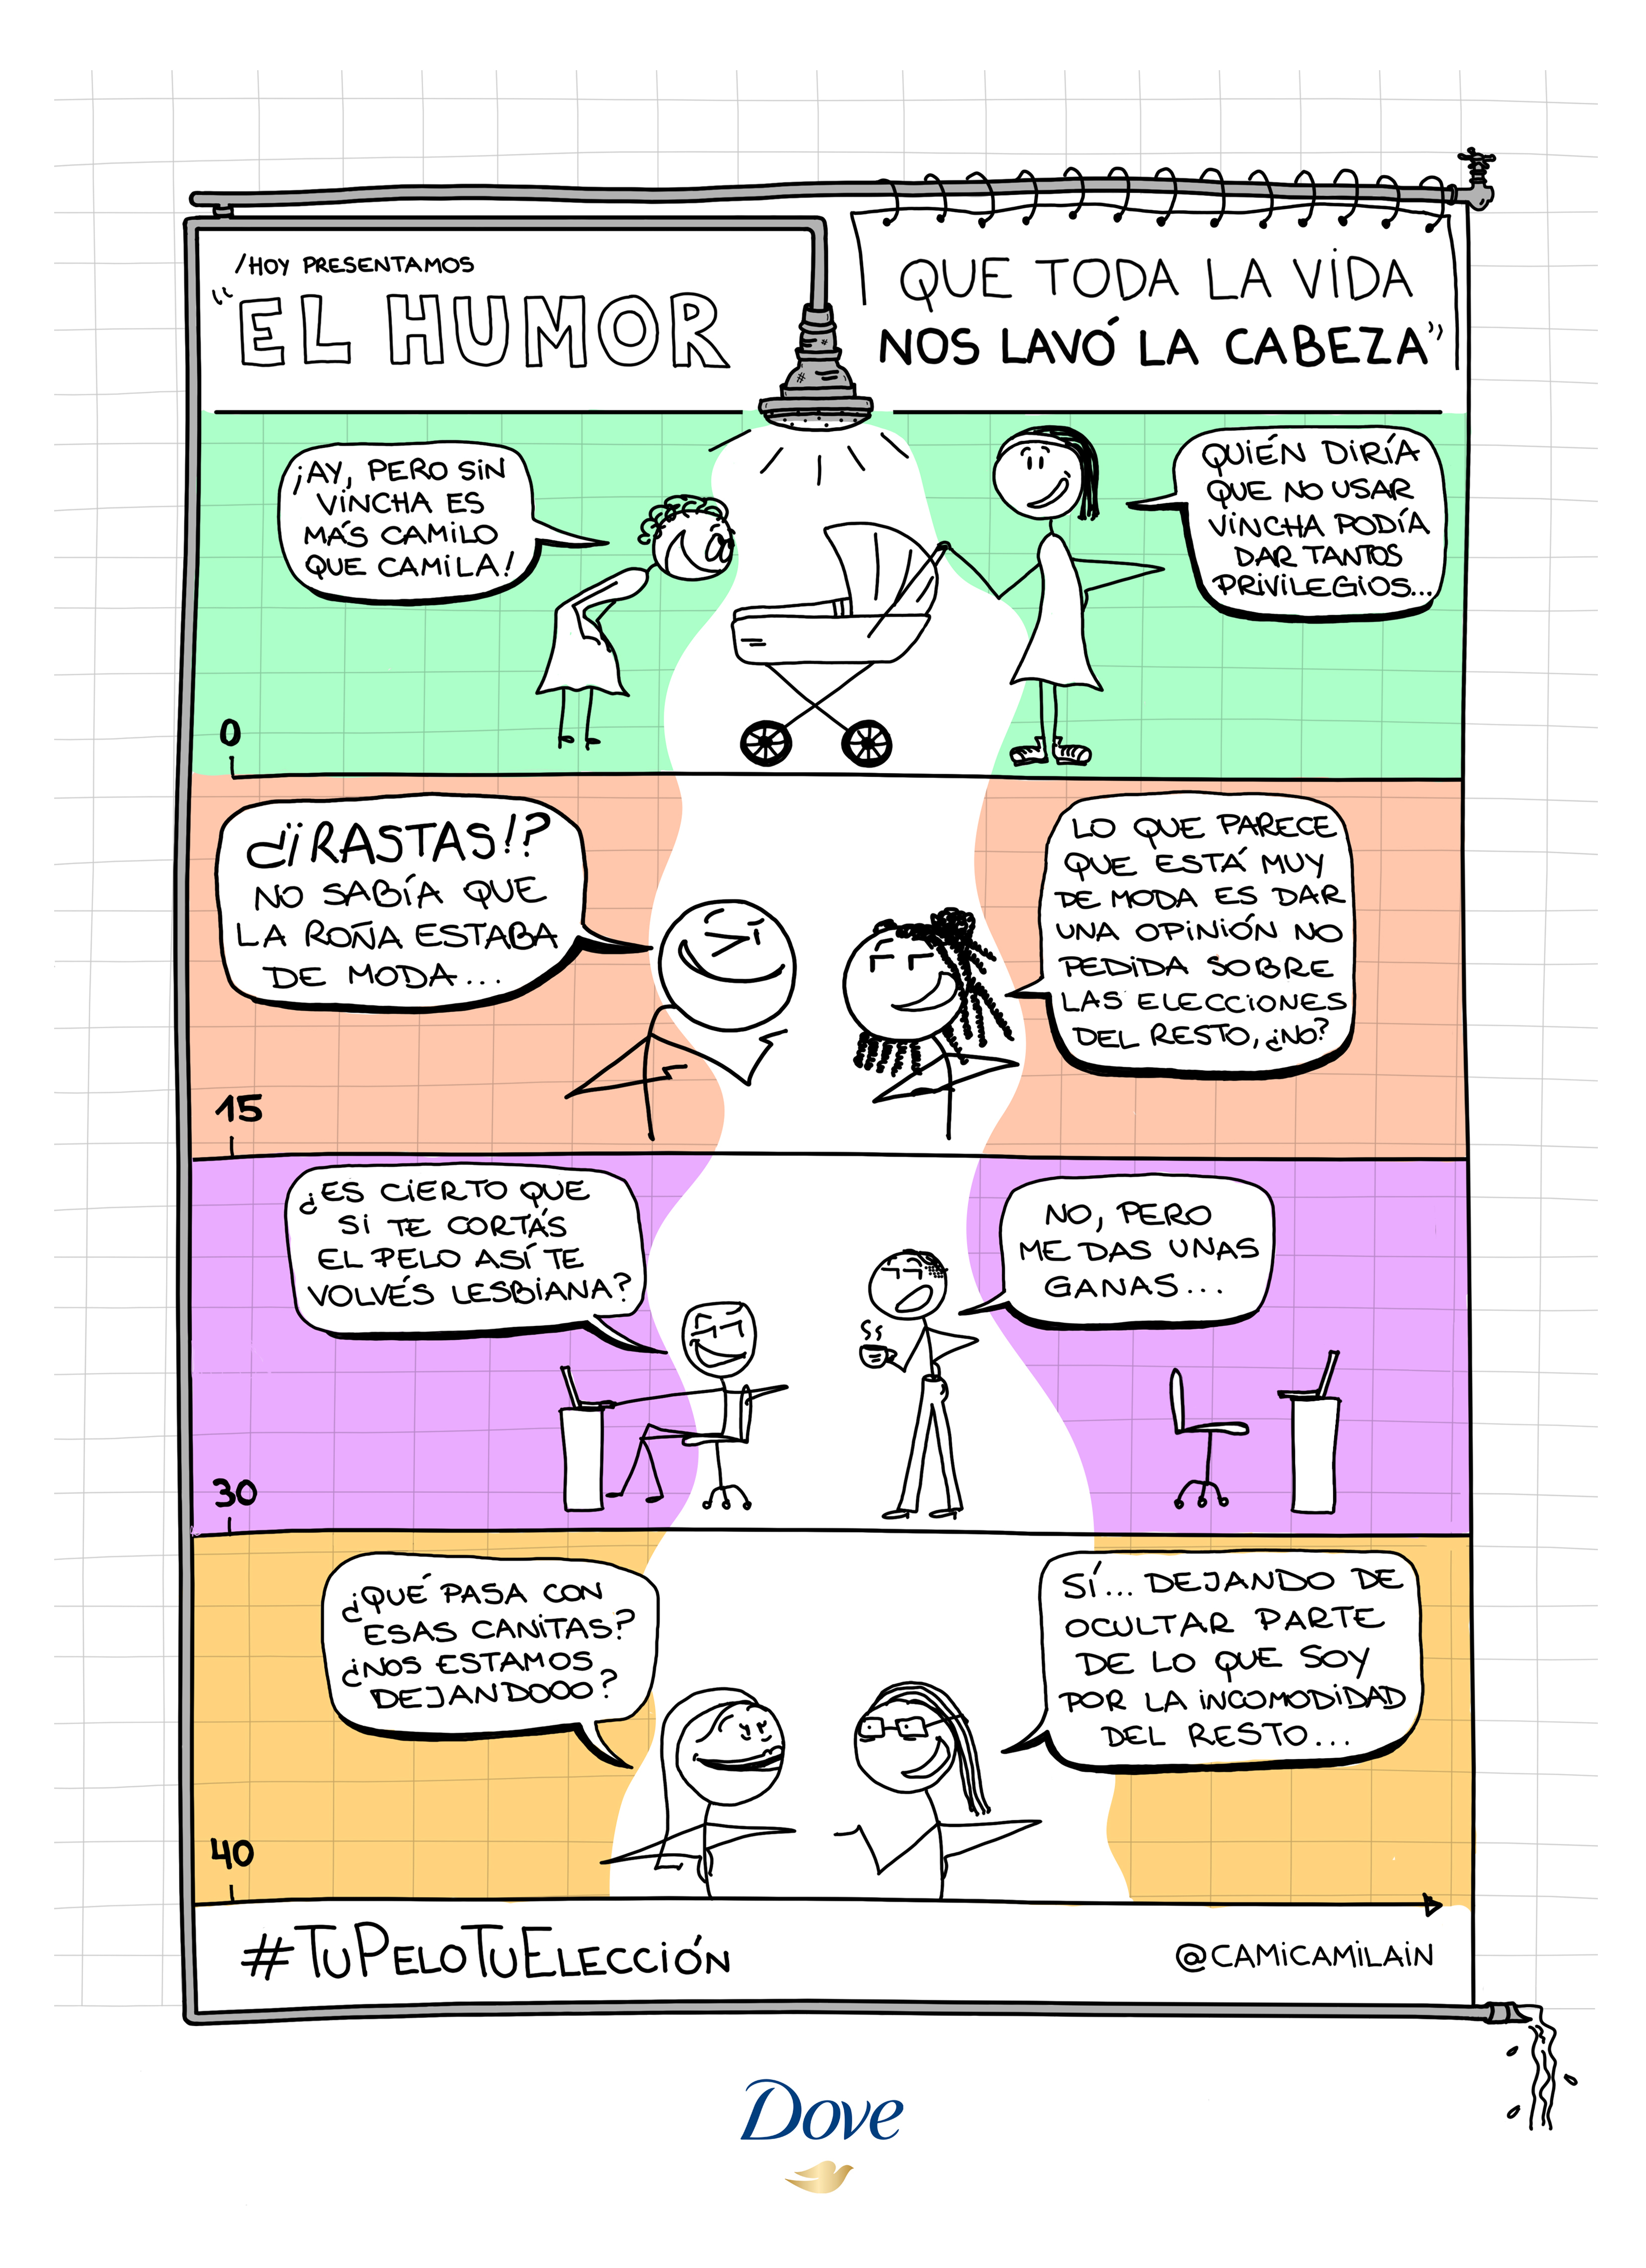 /HOY PRESENTAMOS
"EL HUMOR
QUE TODA LA VIDA
NOS LAVÓ LA CABEZA"
¡AY, PERO SIN
VINCHA ES
MÁS CAMILO
QUE CAMILA!
QUIÉN DIRÍA
QUE NO USAR
VINCHA PODÍA
DAR TANTOS
PRIVILEGIOS...
0
¿¡RASTAS!?
NO SABÍA QUE
LA ROÑA ESTABA
DE MODA...
LO QUE PARECE
QUE ESTÁ MUY
DE MODA ES DAR
UNA OPINIÓN NO
PEDIDA SOBRE
LAS ELECCIONES
DEL RESTO, ¿NO?
15
¿ES CIERTO QUE
SI TE CORTÁS
EL PELO ASÍ TE
VOLVÉS LESBIANA?
NO, PERO
ME DAS UNAS
GANAS...
30
¿QUÉ PASA CON
ESAS CANITAS?
¿NOS ESTAMOS
DEJANDOOO?
SÍ... DEJANDO DE
OCULTAR PARTE
DE LO QUE SOY
POR LA INCOMODIDAD
DEL RESTO...
40
#TuPeloTuElección
@CAMICAMILAIN
Dove